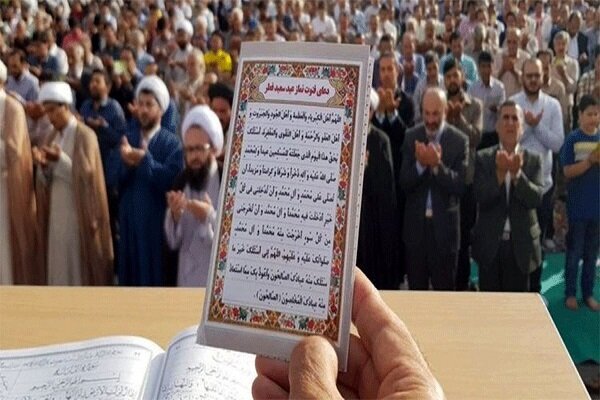 دعای قنوت نماز عید سعید فطر
اَللّهُمَّ اَهْلَ الْکِبْرِیاءِ وَالْعَظَمَةِ وَ اَهْلَ الْجُودِ وَالْجَبَرُوتِ وَ
اَهْلَ الْعَفْوِ وَالرَّحْمَةِ وَ اَهْلَ التَّقْوی وَالْمَغْفِرَةِ اَسْئَلُکَ
بِحَقِّ هذَا الْیَومِ الَّذی جَعَلْتَهُ لِلْمُسْلِمینَ عیداً وَلِمُحَمَّدٍ
صَلَّی اللهُ عَلَیْهِ وَ الِهِ ذُخْراً وَ شَرَفاً وَ کَرامَةً وَ مَزیداً اَنْ
تُصَلِّیَ عَلی مُحَمَّدٍ وَ الِ مُحَمَّدٍ وَ اَنْ تُدْخِلَنی فی کُلِّ
خَیْرٍ اَدْخَلْتَ فیهِ مُحَمَّداً وَ الَ مُحَمَّدٍ وَ اَنْ تُخْرِجَنی
مِنْ کُلِّ سُوءٍ اَخْرَجْتَ مِنْهُ مُحَمَّداً وَ الَ مُحَمَّدٍ
صَلَواتُکَ عَلَیْهِ وَ عَلَیْهِمْ اَللّهُمَّ اِنّی اَسْئَلُکَ خَیْرَ ما
سَئَلَکَ مِنْهُ عِبادُکَ الصّالِحُونَ وَاَعُوذُ بِکَ مِمَّا اسْتَعاذَ
مِنْهُ عِبادُکَ الْمُخْلَصُونَ (الصّالِحُونَ).